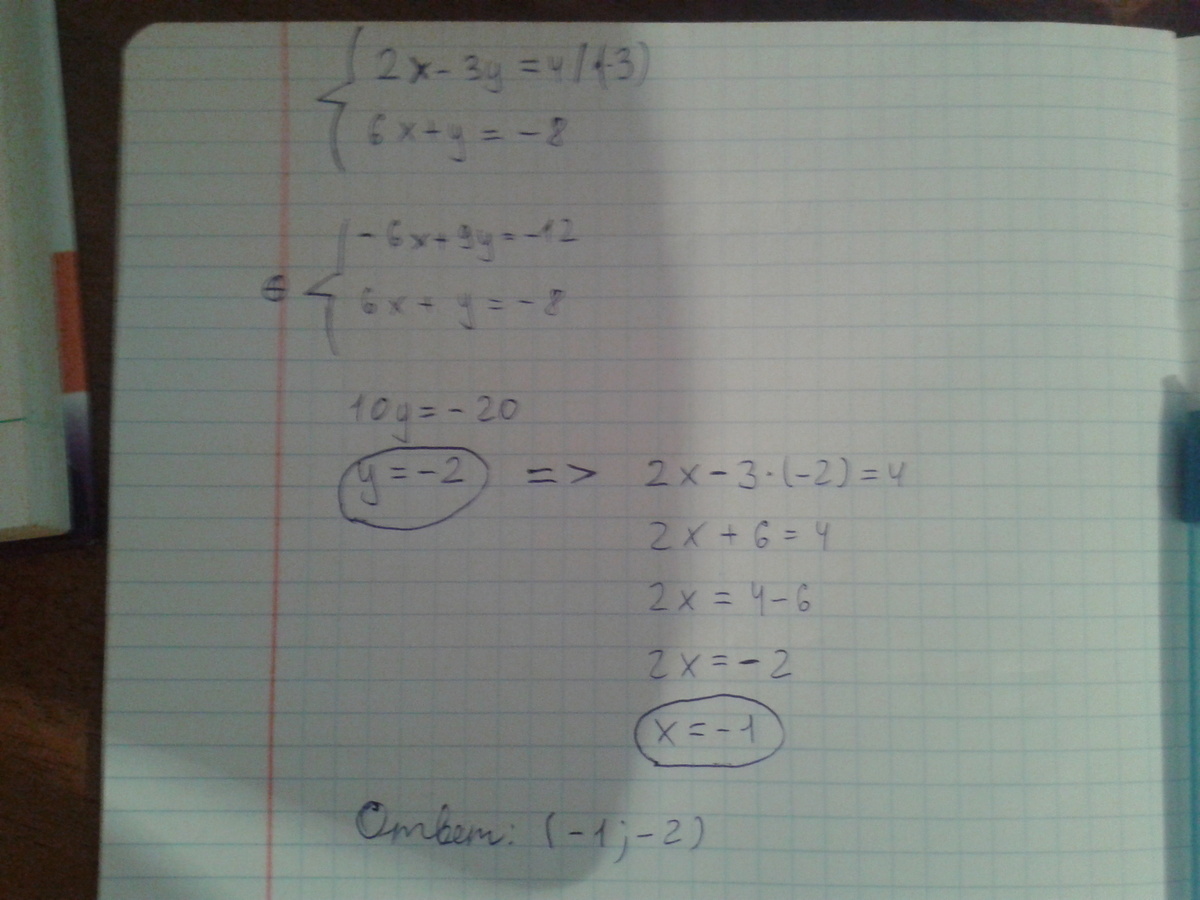 2x - 3y = 4 /·(-3)
6x + y = -8
-6x + 9y = -12
⊕ 6x + y = -8
10y = -20
y = -2 => 2x - 3·(-2) = 4
2x + 6 = 4
2x = 4 - 6
2x = -2
x = -1
Ответ: (-1; -2)